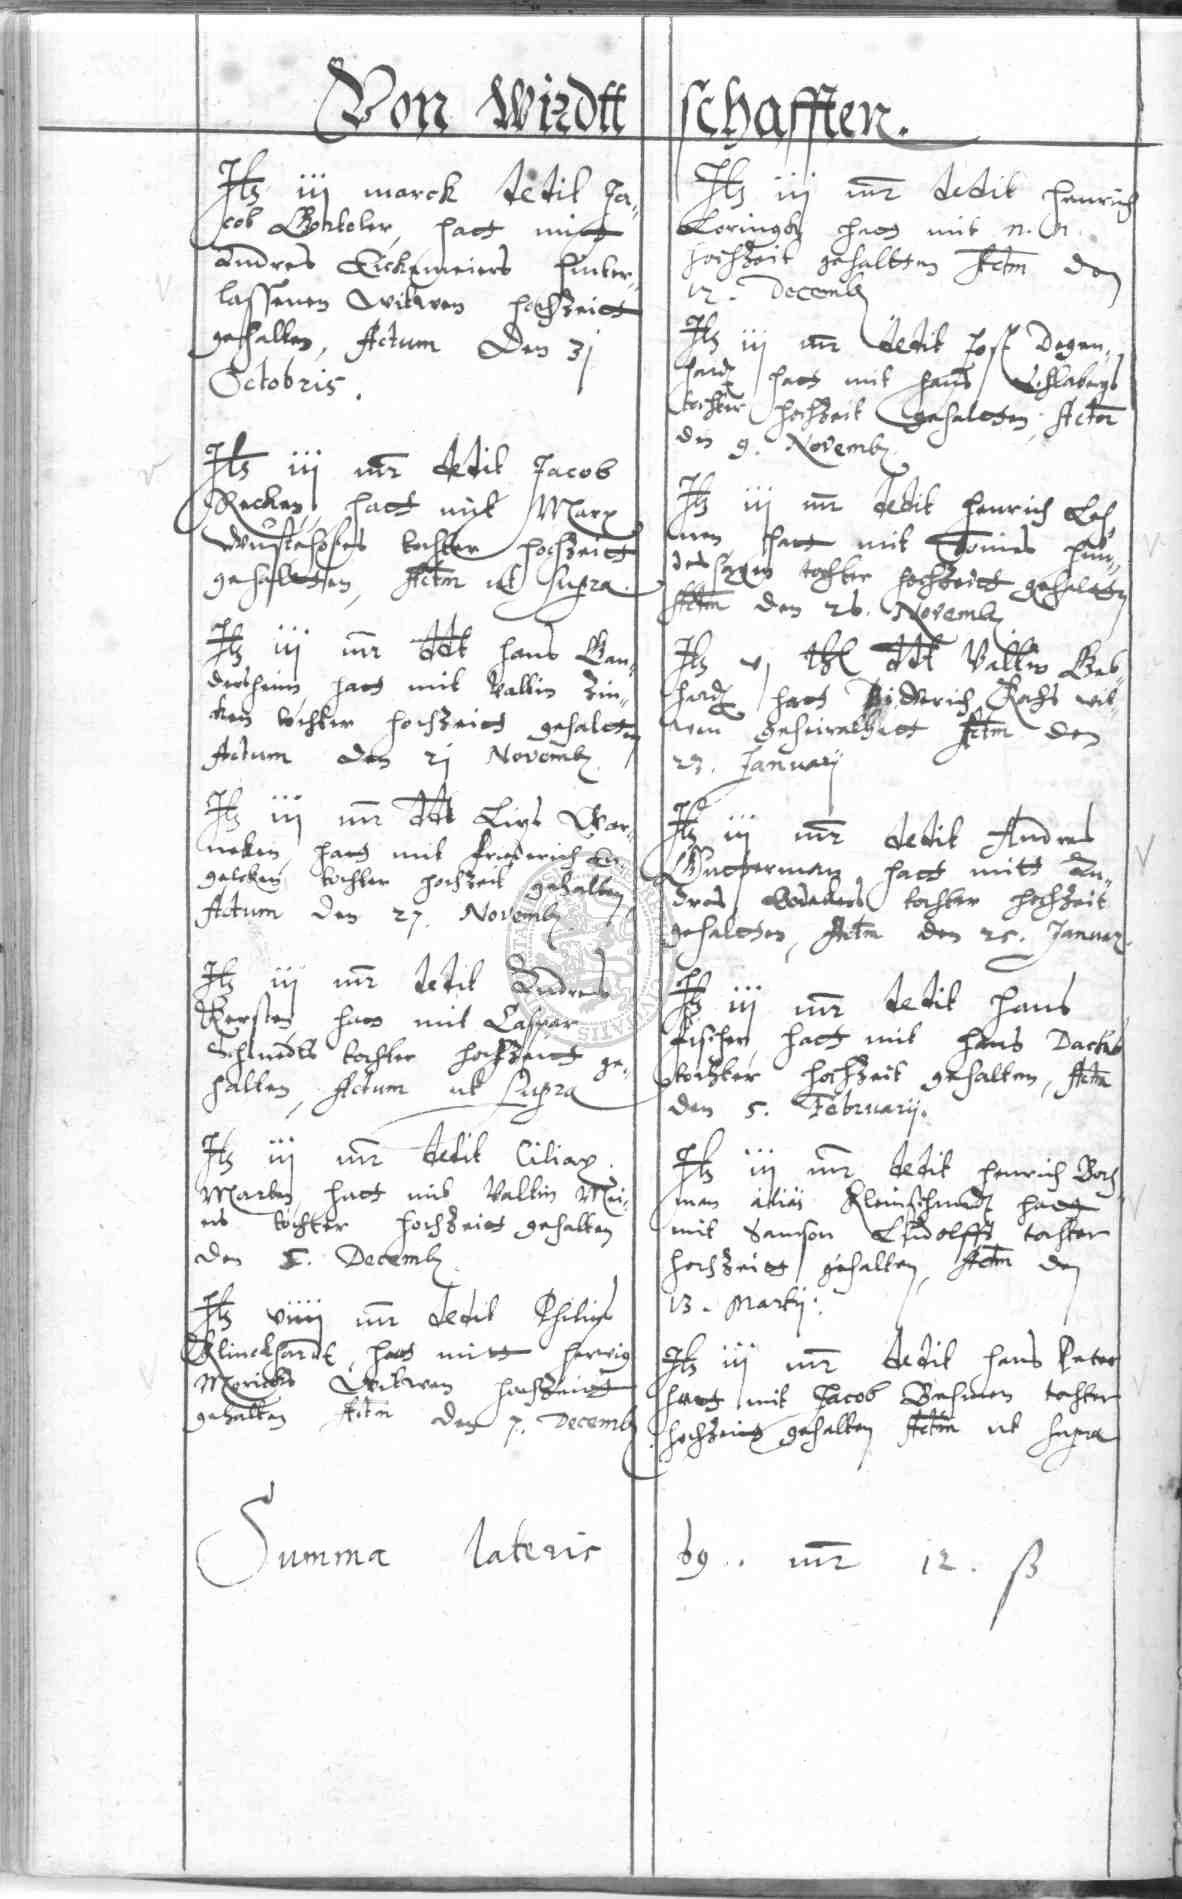 Von Wirdtt schafften.
Itz iij marck dedit Ja-
cob hatt mitt
Andres Eickemeiers hinter-
lassenen Witwen hochzeitt
gehalten, Actum Den 31
Octobris.
Itz iij mr dedit Jacob
Recken, hatt mit Marx
tochter hochzeitt
gehaltten, Actm ut supra.
Itz iij mr ddt hans Gan-
dersheim hatt mit Valtin Zin-
ken tochter hochzeitt gehaltten
Actum den 21 Novemb.
Itz iij mr ddt War-
neken, hatt mit friederich En-
gelcken tochter hochzeit gehalten
Actum den 27. Novemb.
Itz iij mr dedit Andreas
Kersten, hatt mit Caspar
Schmedts tochter hochzeitt ge-
halten, Actum ut supra
Itz iij mr dedit Ciliax
Marten, hatt mit Valtin Mei-
ers tochter hochzeitt gehalten
den 5. Decemb.
Itz viiij mr dedit Philip
Klinckhardt, hatt mitt herwig
Witwen hochzeitt
gehalten Actm den 7. Decemb.
Itz iij mr dedit henrich
hatt mit n. n.
hochzeit gehaltten Actm den
12. Decemb.
Itz iij mr dedit Jost Degen-
hardt hatt mit hans
tochter hochzeit gehaltten, Actm
den 9. Novemb.
Itz iij mr dedit henrich
hatt mit Tonies
tochter hochzeitt gehaltten
Actm den 26. Novemb.
Itz vj ddt Valtin Geb-
hardt hatt Diderich Wit-
wen Actm den
23. Januarij
Itz iij mr dedit Andres
hatt mitt An-
dres tochter hochzeit
gehaltten, Actm den 25. Januar.
Itz iij mr dedit hans
fischer, hatt mit hans
tochter hochzeit gehalten, Actm
den 5. Februarij.
Itz iij mr dedit henrich Boch-
man alias Kleinschmidt hatt
mit Samson Ludolffs tochter
hochzeitt gehalten, Actm den
13. Martij.
Itz iij mr dedit hans Peter
hatt mit Jacob tochter
hochzeitt gehalten Actm ut supra
Summa lateris 69.. mr 12. ß